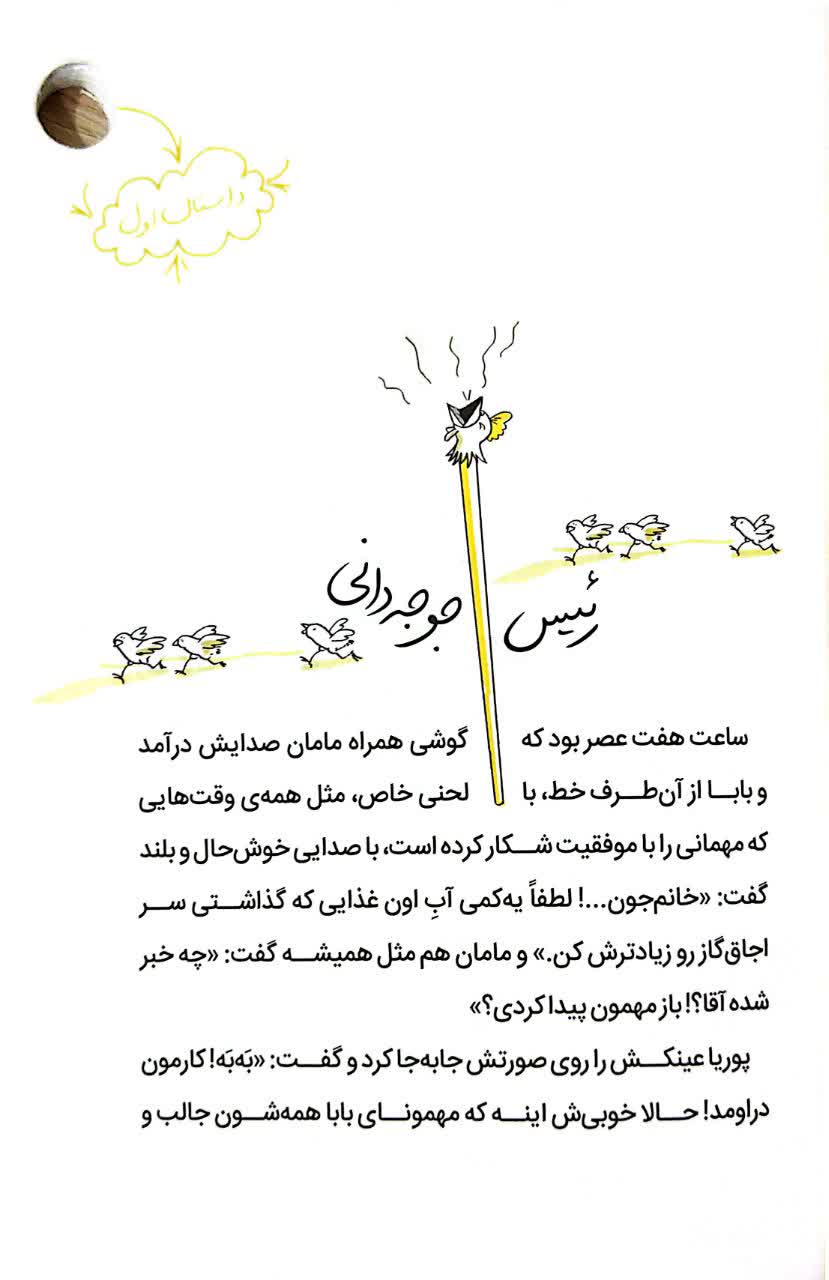 داستان اول
رئیس جوجه‌دانی
ساعت هفت عصر بود که گوشی همراه مامان صدایش درآمد
و بابا از آن‌طرف خط، با لحنی خاص، مثل همه‌ی وقت‌هایی
که مهمانی را با موفقیت شکار کرده است، با صدایی خوش‌حال و بلند
گفت: «خانم‌جون...! لطفاً یه‌کمی آبِ اون غذایی که گذاشتی سر
اجاق‌گاز رو زیادترش کن.» و مامان هم مثل همیشه گفت: «چه خبر
شده آقا؟! باز مهمون پیدا کردی؟»
پوریا عینکش را روی صورتش جابه‌جا کرد و گفت: «بَه‌بَه! کارمون
دراومد! حالا خوبی‌ش اینه که مهمونای بابا همه‌شون جالب و